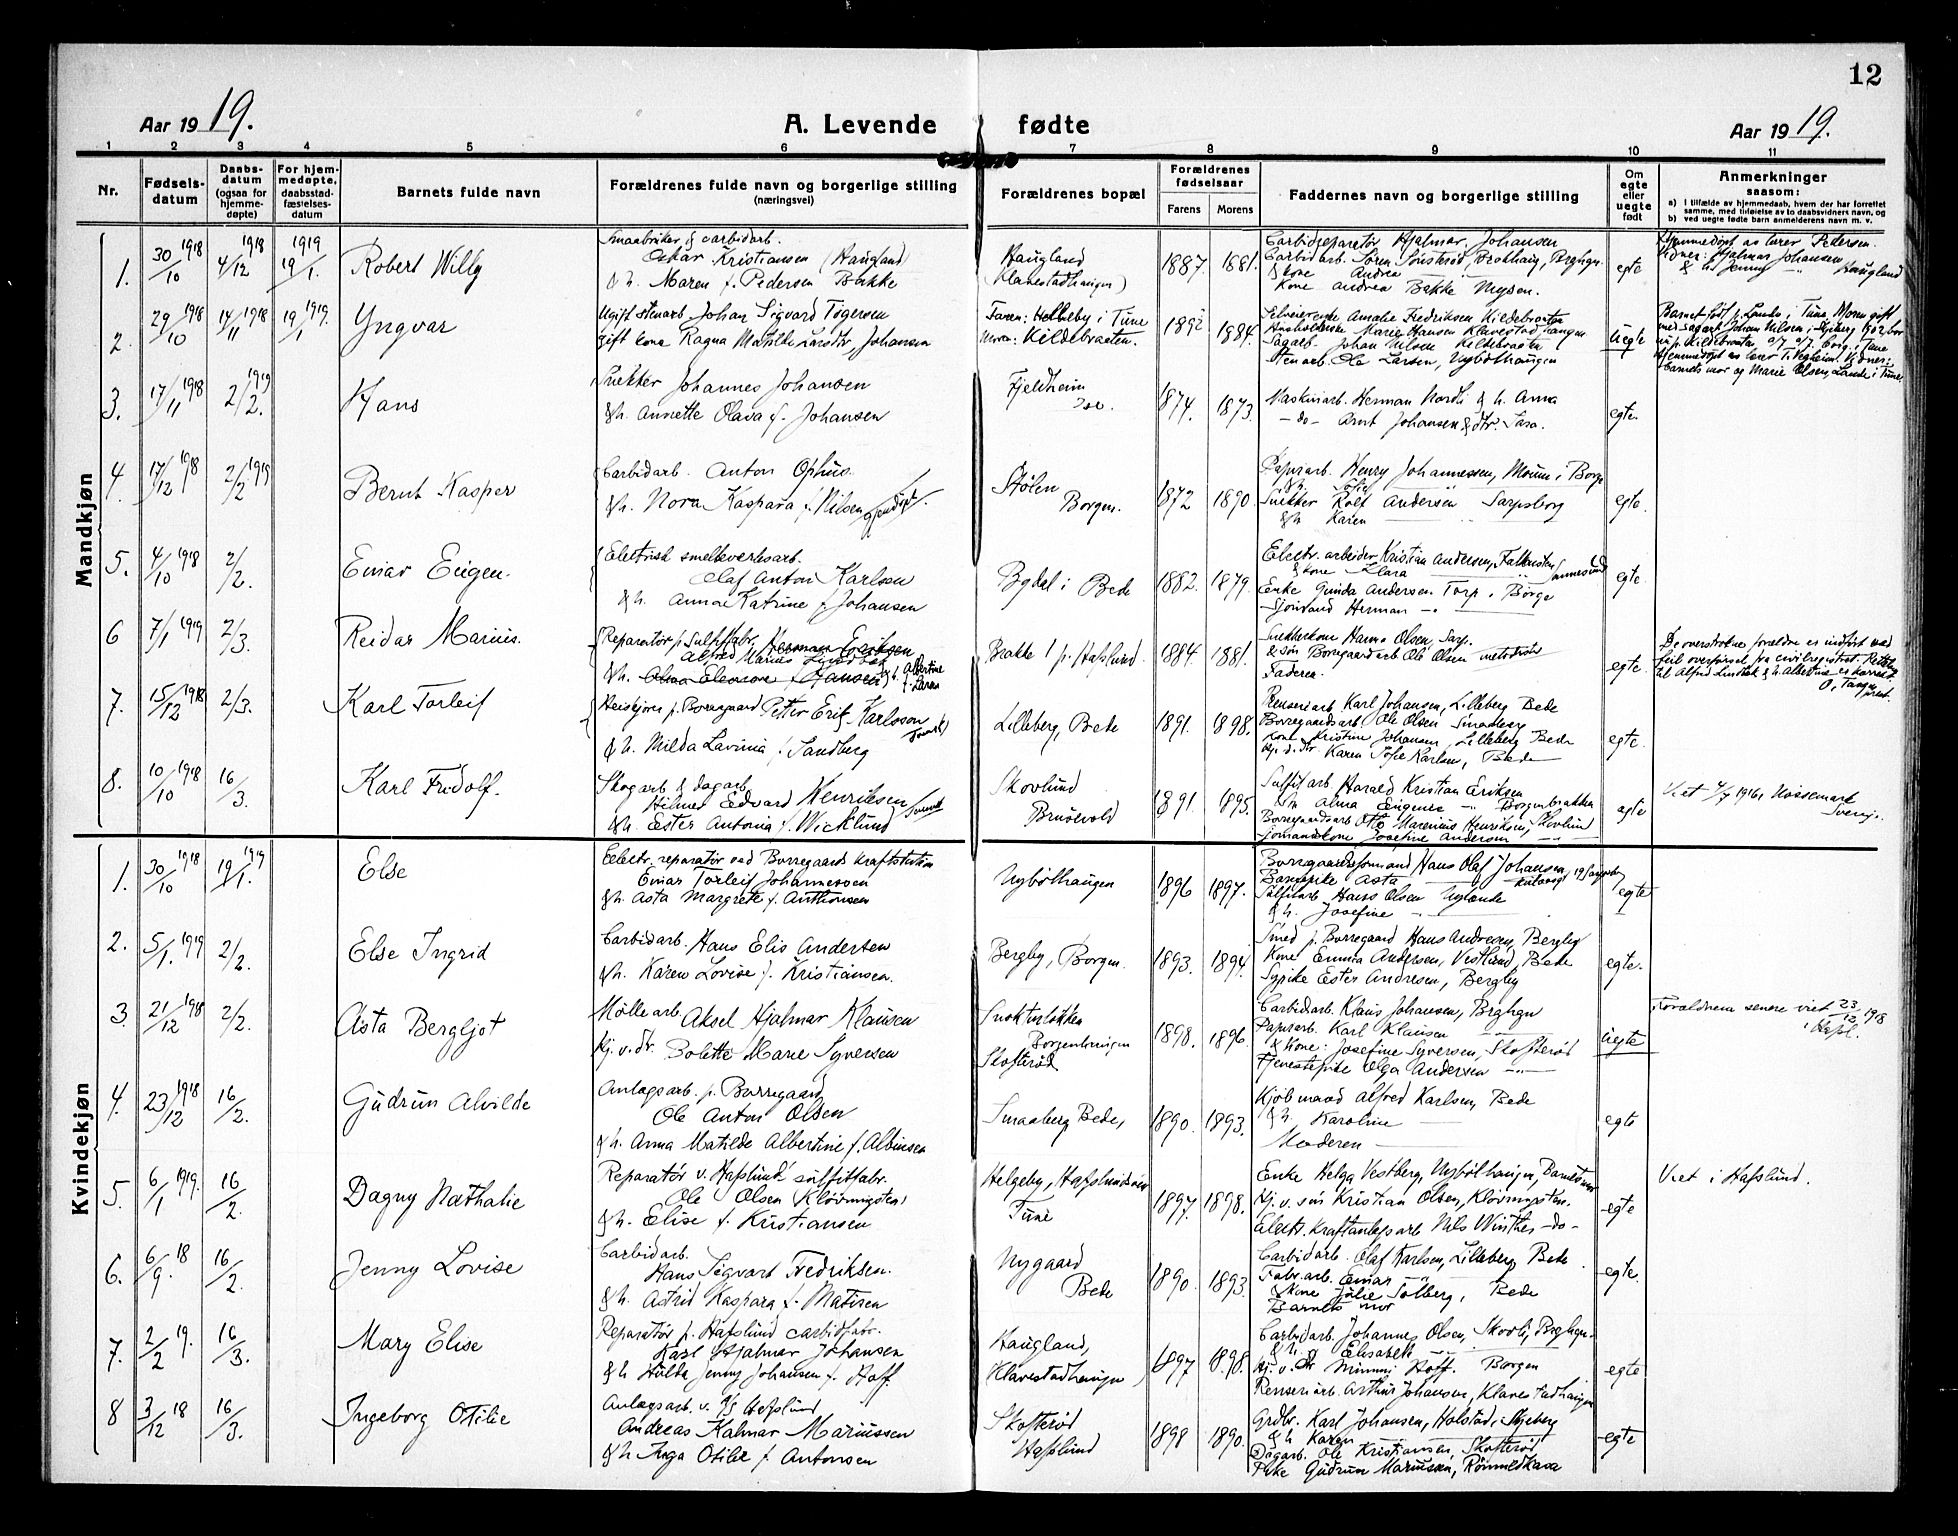 12
Aar 19 19.
A. Levende fødte
Aar 19 19.
1 2 3 4 5 6 7 8 9 10 11
Nr.
Fødselsdatum
Daabsdatum (ogsaa for hjemmedøpte)
For hjemmedøpte, daabsstadfæstelsesdatum
Barnets fulde navn
Forældrenes fulde navn og borgerlige stilling (næringsvei)
Forældrenes bopæl
Forældrenes fødselsaar
Farens Morens
Faddernes navn og borgerlige stilling
Om egte eller uegte født
Anmerkninger
saasom:
a) I tilfælde av hjemmedaab, hvem der har forrettet samme, med tilføielse av to daabsvidners navn, og
b) ved uegte fødte barn anmelderens navn m. v.
Mandkjøn
1. 30/10 1918 4/12 1918 19/1 1919 Robert Willy
Smaabruker & carbidarb.
Oskar Kristiansen (Haugland)
& h. Maren f. Pedersen Bakke
Haugland
(Klavestadhaugen)
1887. 1881.
Carbidreparatør Hjalmar Johansen
kone Andrea Bakke Mysen.
egte
Hjemmedøpt av lærer Pedersen.
Vidner: Hjalmar Johansen
& h. Jenny Haugland
2. 29/10 1918 14/11 1918 19/1 1919. Yngvar
Ugift stenarb. Johan Sigvard Tøgersen
gift kona Ragna Matilde Larsdtr. Johansen
Faren: Helleby i Tune
Moren: Kildebraaten.
1892 1884.
Amalie Fredriksen Kildebraaten
Marie Hansen Klavestadhaugen
Sagarb. Johan Nilsen Kildebraaten
Stenarb. Ole Larsen, Nybølhaugen
Uegte
Barnet født p. Lande i Tune. Moren gift
med sagarb. Johan Nilsen i Skjeberg 1902 bor
barnets mor og Marie Olsen, Lande i Tune.
3. 17/11 1918 2/2. 1919 Hans
Snekker Johannes Johansen
& h. Annette Olava f. Johansen
Fjeldheim
Ise.
1874. 1873.
Maskinarb. Herman Nordli & h. Anna
- do - Arnt Johansen & dtr. Sara.
egte.
4. 17/12 1918 2/2 1919 Bernt Kasper
Carbidarb. Anton Ophus.
& h. Nora Kaspara f. Nilsen
Stølen
Borgen.
1872 1890
Papirarb. Henry Johannessen, Moum i Borge
& h. Sofie
Snekker Rolf Andersen Sarpsborg
& h. Karen
egte.
5. 4/10 1918 2/2. Einar Eugen.
Electrisk smelteverksarb.
Olaf Anton Karlsen
& h. Anna Katrine f. Johansen
Bydal i Bede
1882. 1879.
Electr. arbeider Kristian Andersen,
& kone Klara
Enke Gunda Andersen. Torp i Borge
Herman
egte.
6 7/1 1919 2/3. Reidar Marius.
Reparatør p. Sulfitfabr. Herman Eriksen
Alfred Marius Lindbæk
& h. Alma Eleonore f. Hansen & h. Albertine f. Larsen
Brakke 1 p. Hafslund.
1884. 1881.
Snekkerkone Hanna Olsen, Sarp.
& søn Borregaardarb. Ole Olsen metodister
Faderen.
egte
De overstrøkne forældre er indført ved
feil overførsel fra civilregistret. Rettelse
til Alfred Lindbæk & h. Albertine er korrekt.
7. 15/12 1918 2/3. Karl Torleif
Heiskjører p. Borregaard Petter Erik Karlsson
& h. Milda Lavinia f. Sandberg
Lilleberg, Bede
1891. 1898.
Renseriarb. Karl Johansen, Lilleberg Bede
Borregaardsarb. Ole Olsen Smaaberg
kone Kristine Johansen, Lilleberg Bede
Karen Sofie Karlsen, Bede
egte.
8. 10/10 1918 16/3. Karl Fridolf.
Skogarb. & dagarb.
Hilmer Edvard Henriksen
& h. Ester Antonia f. Wicklund
Skovlund
Brusevold
1891. 1895.
Sulfitarb. Harald Kristian Eriksen
Alma Eugenie Borgenbrakken
Borregaardsarb. Otto Marenius Henriksen, Skovlund
kone Josefine Andersen
egte
Viet 4/7 1916, Nössemark
Sverige.
Kvindekjøn
1. 30/10 1918 19/1. 1919 Else
Electr. reparatør ved Borregaards Kraftstation
Einar Torleif Johannessen
& h. Asta Margrete f. Anthonsen
Nybølhaugen
1896 1897.
Borregaardsformand Hans Olaf Johansen,
Asta
Sulfitarb. Hans Olsen Nylende
& h. Josefine
egte
2. 5/1. 1919 2/2. Else Ingrid
Carbidarb. Hans Elis Andersen
& h. Karen Lovise f. Kristiansen.
Bergby, Borgen.
1893. 1894.
Smed p. Borregaard Hans Andresen, Bergby
Kone Emma Andersen, Vestlund, Bede
Sypike Ester Andresen, Bergby
egte.
3. 21/12 1918 2/2. Asta Bergljot
Møllearb. Aksel Hjalmar Klausen
Pj. v. dr. Bolette Marie Syversen
Borgenhaugen
Skofterød
1898. 1896.
Carbidarb. Klaus Johansen, Brghgn
Papirarb. Karl Klausen
& kone: Josefine Syversen, Skofterød
Tjenestepike Olga Andersen
uegte
Forældrene senere viet 23/12 1918
i Hafsl.
4. 23/12 1918 16/2. Gudrun Alvilde
Anlægsarb. p. Borregaard,
Ole Anton Olsen
& h. Anna Matilde Albertine f. Albinsen
Smaaberg Bede,
1890. 1893.
Kjøbmand Alfred Karlsen, Bede
& h. Karoline
Moderen
egte
5. 6/1 1919. 16/2. Dagny Nathalie
Reparatør v. Hafslund sulfitfabr.
Ole Olsen Kløvningsten
& h. Elise f. Kristiansen
Helgeby, Hafslundsøen
Tune
1897. 1898.
Enke Helga Vestberg, Nybølhaugen,
Pj. v. søn Kristian Olsen, Kløvningsten.
Electr. Kraftanlægsarb Nils Winther -do-
egte
Viet i Hafslund.
6. 6/9. 18 16/2. Jenny Lovise
Carbidarb.
Hans Sigvart Fredriksen.
& h. Astrid Kaspara f. Matisen
Nygaard
Bede
1890. 1893.
Carbidarb. Olaf Karlsen, Lilleberg, Bede
Fabr. arb. Einar
& kone Julie Solberg, Bede
Barnets mor
egte.
7. 2/2 19. 16/3. Mary Elise
Reparatør p. Hafslund carbidfabr.
Karl Hjalmar Johansen
& h Hulda Jenny Johansen f. Hoff.
Haugland,
Klavestadhaugen
1897 1898.
Carbidarb. Johannes Olsen, Skovli, Brghgn.
& h. Elisabeth
Pj. v. dr Minny Hoff. Borgen
Renseriarb. Arthur Johansen, Klavestadhaugen
egte
8 3/12 18 16/3. Ingeborg Otilie
Anlægsarb. v. A/S Hafslund
Andreas Kalmar Mariussen
& h Inga Otilie f. Antonsen
Skofterød
Hafslund
1898 1890.
Grdbr. Karl Johansen, Holstad, Skjeberg
& h Karen
Dagarb. Ole Kristiansen, Skofterød
Pike Gudrun Mariussen,
egte